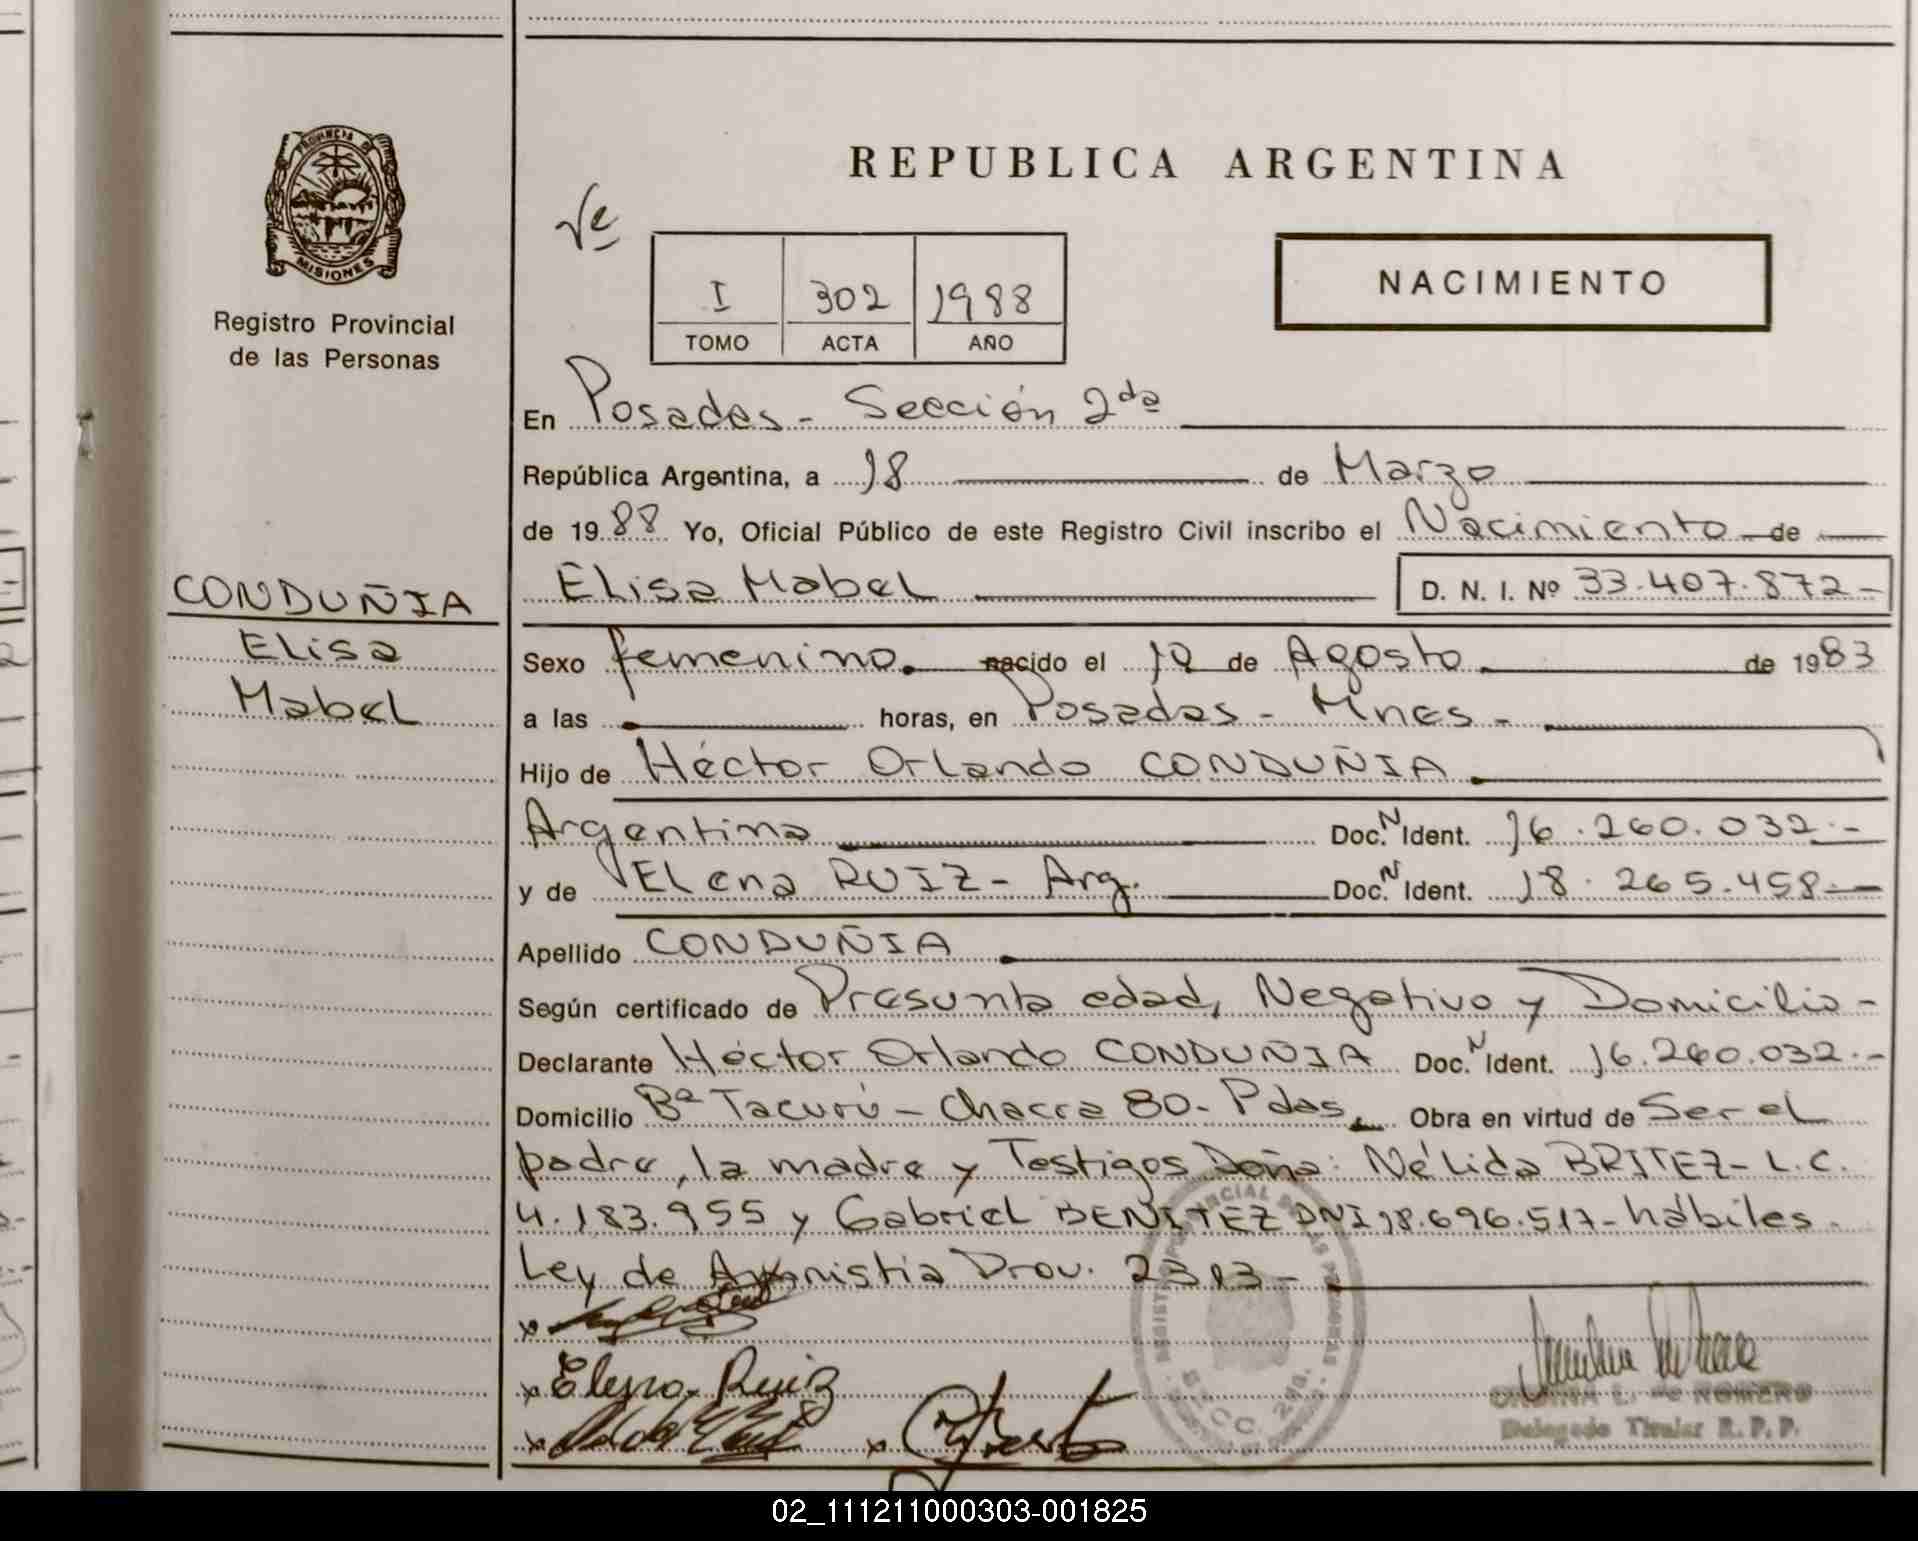 PROVINCIA DE
MISIONES
Registro Provincial
de las Personas
CONDUÑIA
Elisa
Mabel
REPUBLICA ARGENTINA
I 302 1988
TOMO ACTA AÑO
NACIMIENTO
En Posadas - Sección 2da
República Argentina, a 18 de Marzo
de 1988 Yo, Oficial Público de este Registro Civil inscribo el Nacimiento de
Elisa Mabel D. N. I. Nº 33.407.872-
Sexo femenino. nacido el 10 de Agosto de 1983
a las horas, en Posadas - Mnes -
Hijo de Héctor Orlando CONDUÑIA
Argentina Doc. N Ident. 16.260.032.-
y de Elena RUIZ - Arg. Doc. N Ident. 18.265.458.-
Apellido CONDUÑIA
Según certificado de Presunta edad, Negativo y Domicilio -
Declarante Héctor Orlando CONDUÑIA Doc. N Ident. 16.260.032.-
Domicilio Bº Tacurú - Chacra 80 - Pdas. Obra en virtud de Ser el
padre, la madre y Testigos Doña: Nélida BRITEZ - L.C.
4.183.955 y Gabriel BENITEZ DNI 18.696.517 - hábiles.
Ley de Amnistia Prov. 2313 -
x
x Elena Ruiz
x x
L. de ROMERO
Delegado Titular R. P. P.
02_111211000303-001825